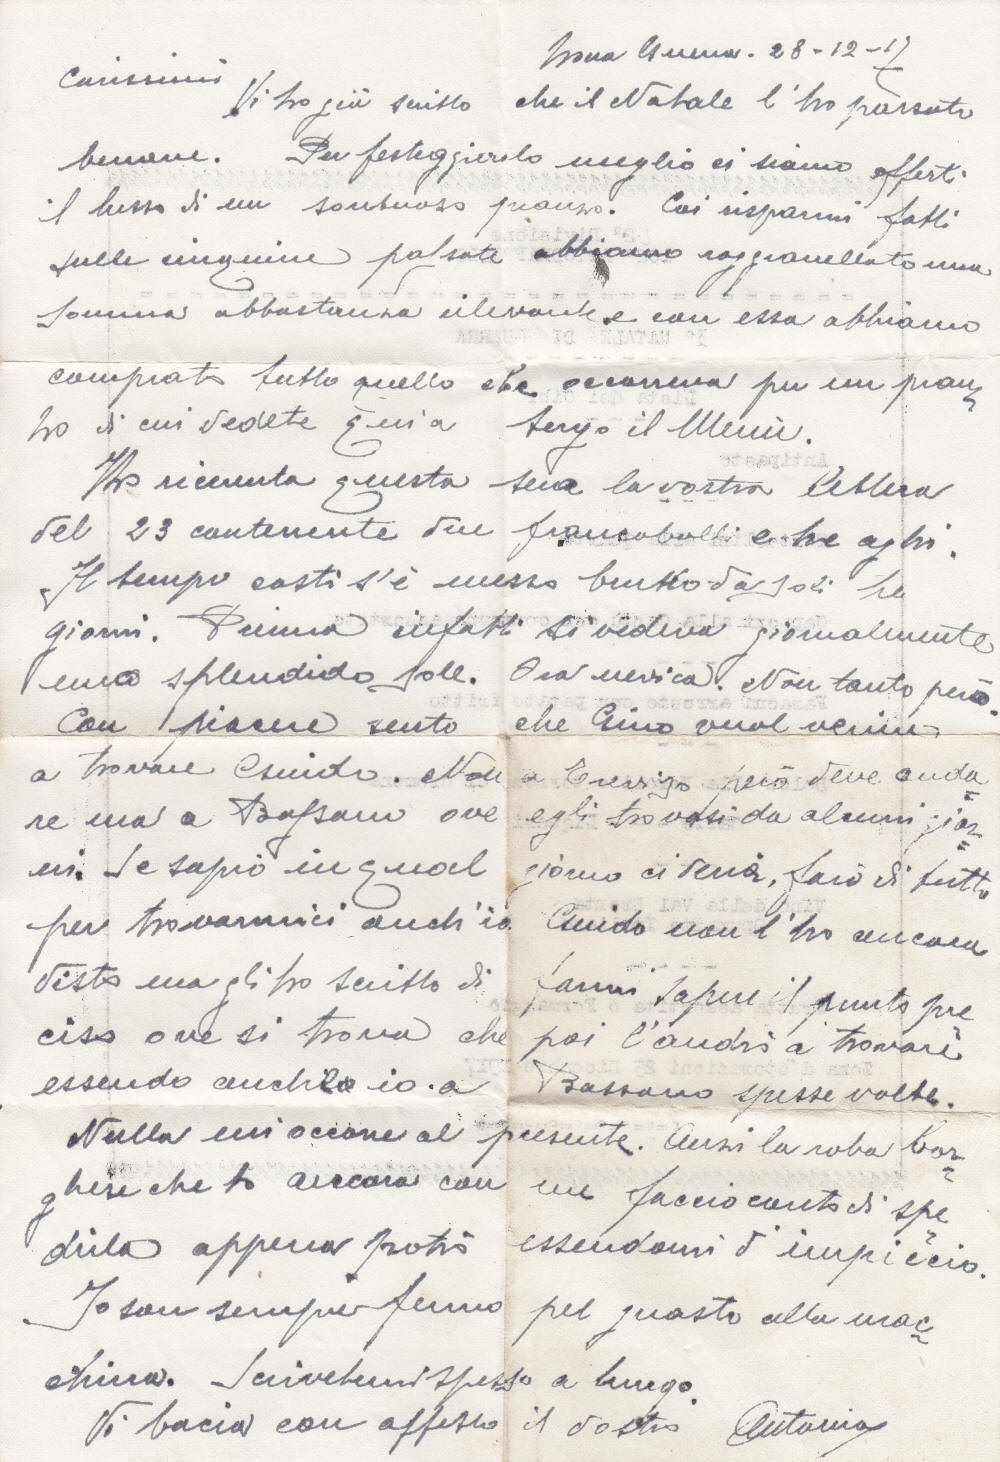 Zona Guerra. 28-12-17
Carissimi
Vi ho già scritto che il Natale l'ho passato
benone. Per festeggiarlo meglio ci siamo offerti
il lusso di un sontuoso pranzo. Coi risparmi fatti
sulle cinquine passate abbiamo raggranellato una
somma abbastanza rilevante e con essa abbiamo
comprato tutto quello che occorreva per un pran=
zo di cui vedete qui a tergo il Menù.
Ho ricevuta questa sera la vostra lettera
del 23 contenente due francobolli e tre aghi.
Il tempo costì s'è messo brutto da soli tre
giorni. Prima infatti si vedeva giornalmente
uno splendido sole. Ora nevica. Non tanto però.
Con piacere sento che Gino vuol venire
a trovare Guido. Non a Treviso però deve anda=
re ma a Bassano ove egli trovasi da alcuni gior=
ni. Se saprò in qual giorno ci verrà, farò di tutto
per trovarmici anch'io Guido non l'ho ancora
visto ma gli ho scritto di farmi sapere il punto pre
ciso ove si trova che poi l'andrò a trovare
essendo anch'io a Bassano spesse volte.
Nulla mi occorre al presente. Anzi la roba bor=
ghese che ho ancora con me faccio conto di spe
dirla appena potrò essendomi d'impiccio.
Io son sempre fermo pel guasto alla mac=
china. Scrivetemi spesso a lungo.
Vi bacia con affetto il vostro Antonio
1° NATALE DI GUERRA
Lista dei cibi
Antipasto